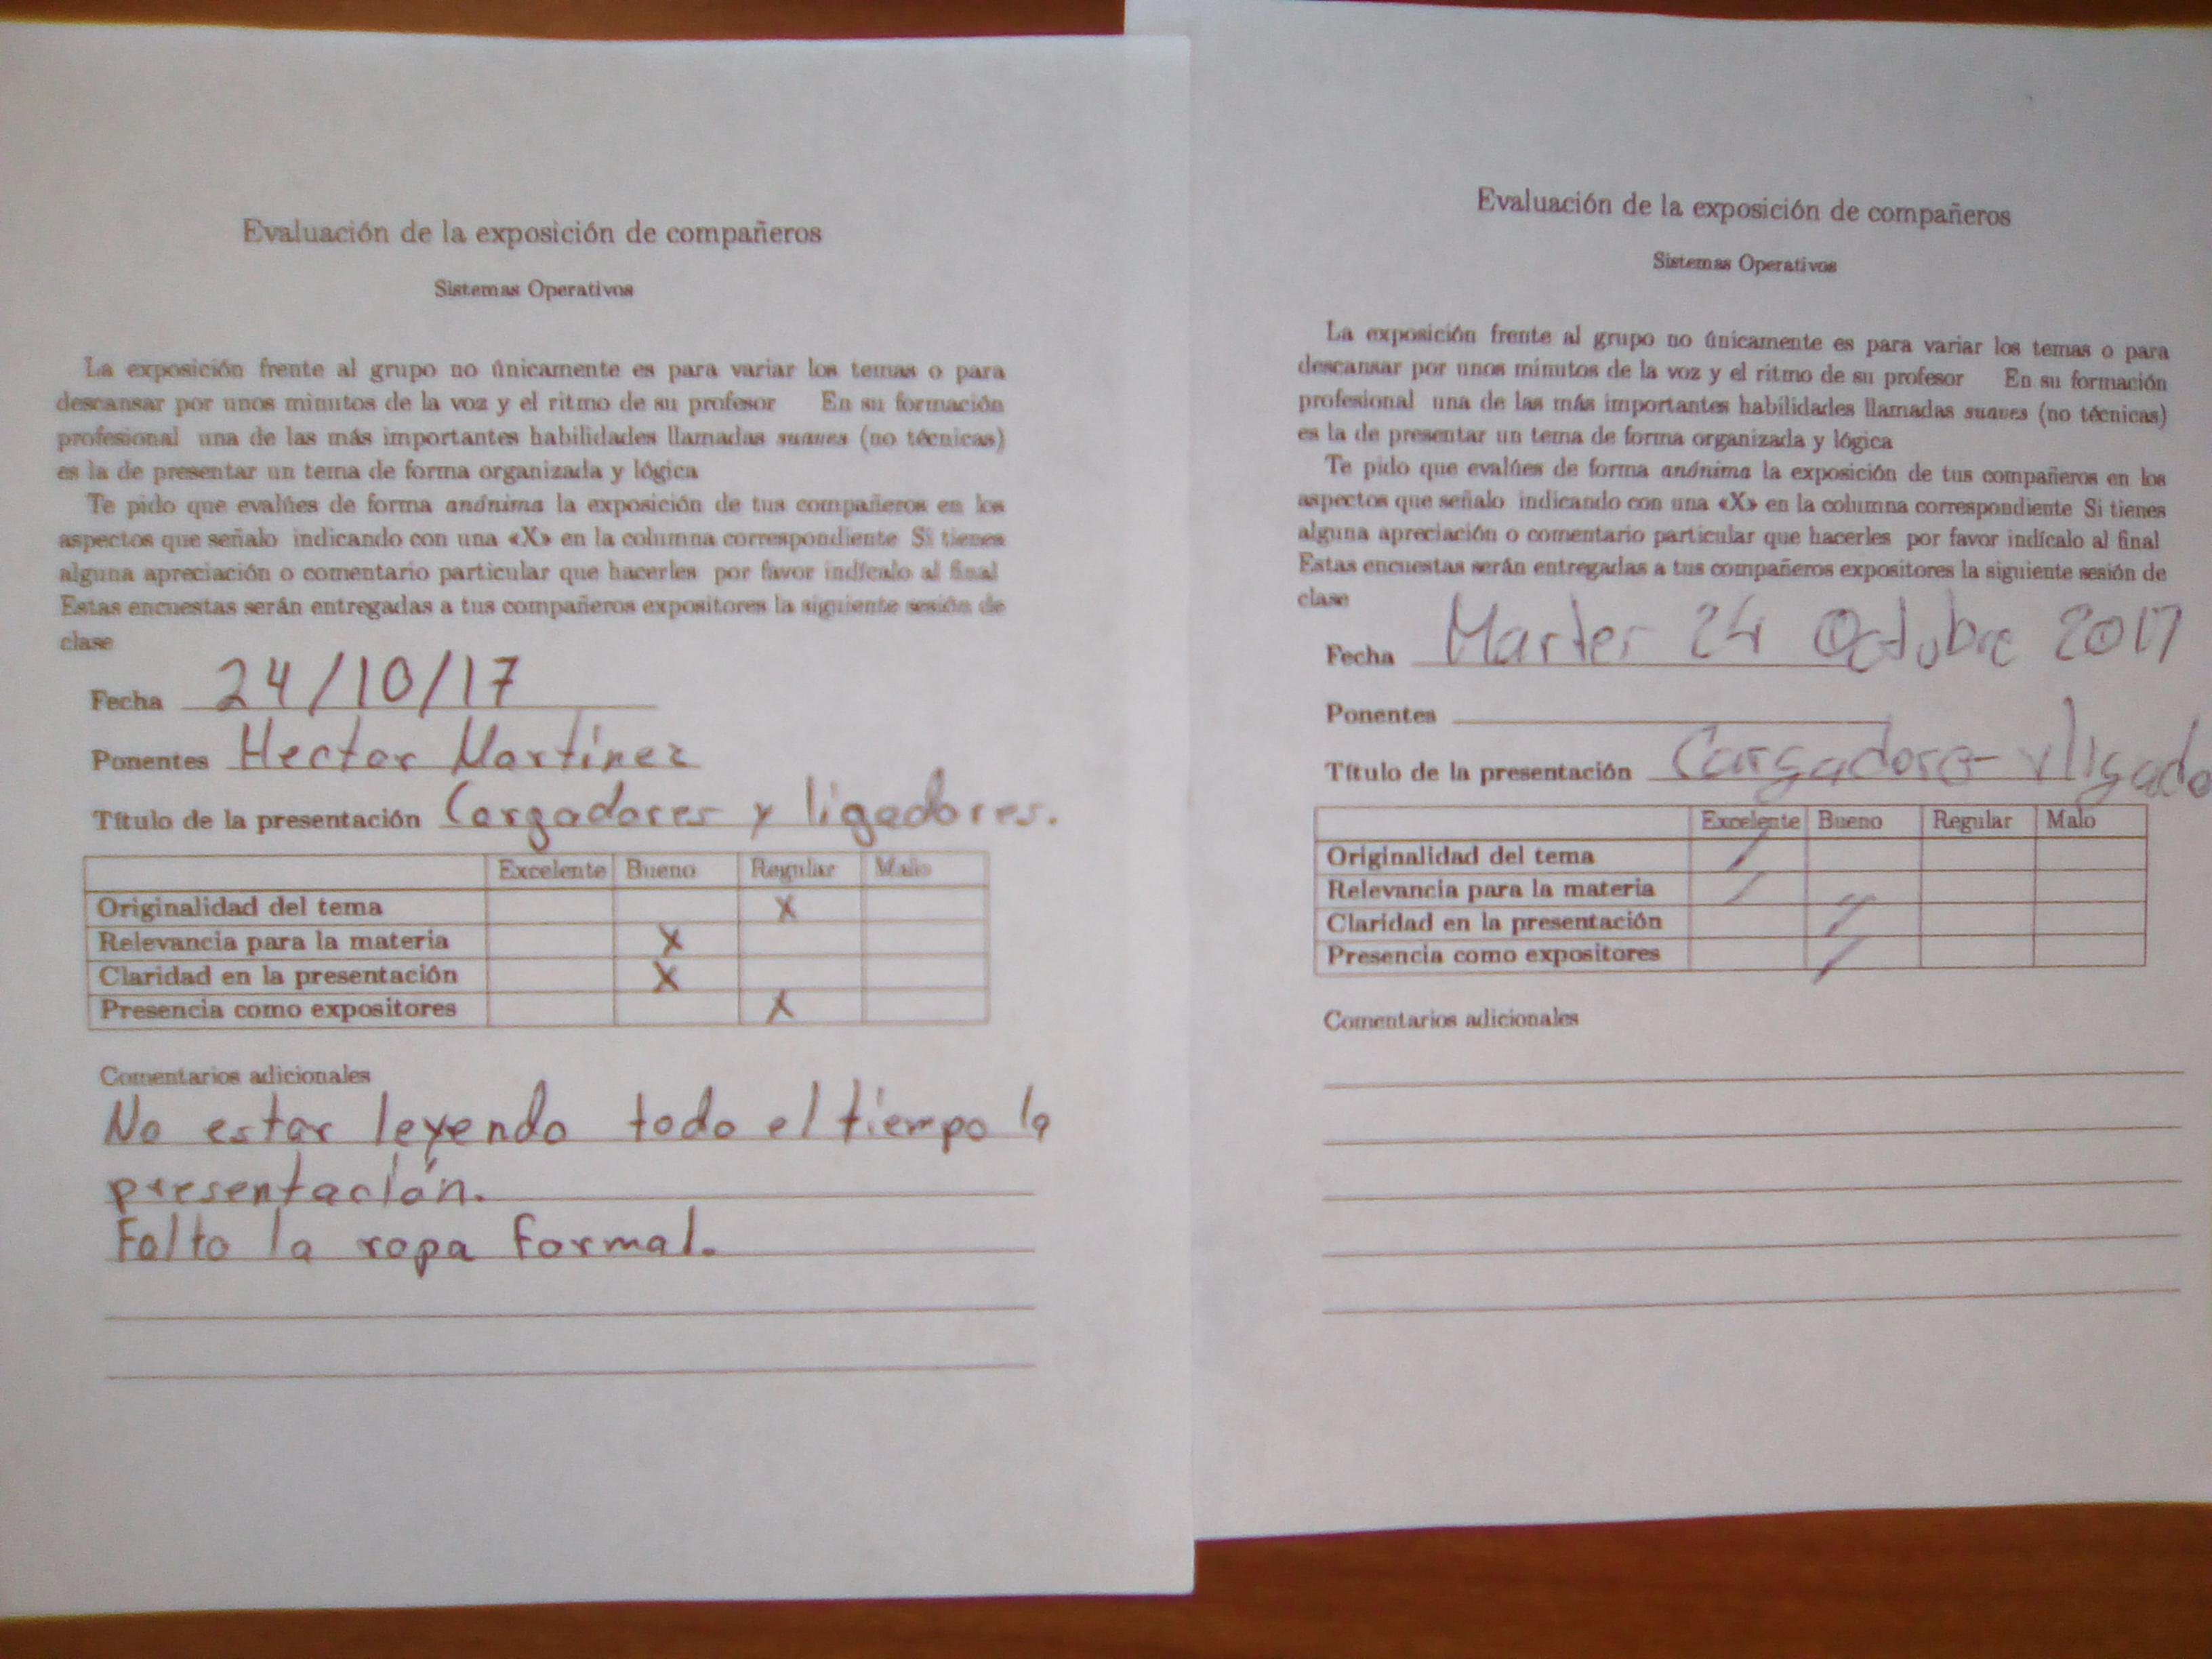 Evaluación de la exposición de compañeros
Sistemas Operativos
La exposición frente al grupo no únicamente es para variar los temas o para
descansar por unos minutos de la voz y el ritmo de su profesor En su formación
profesional una de las más importantes habilidades llamadas suaves (no técnicas)
es la de presentar un tema de forma organizada y lógica
Te pido que evalúes de forma anónima la exposición de tus compañeros en los
aspectos que señalo indicando con una «X» en la columna correspondiente Si tienes
alguna apreciación o comentario particular que hacerles por favor indícalo al final
Estas encuestas serán entregadas a tus compañeros expositores la siguiente sesión de
clase
Fecha 24/10/17
Ponentes Hector Martínez
Título de la presentación Cargadores y ligadores.
Excelente Bueno Regular Malo
Originalidad del tema X
Relevancia para la materia X
Claridad en la presentación X
Presencia como expositores X
Comentarios adicionales
No estar leyendo todo el tiempo la
presentación.
Falto la ropa formal.
Evaluación de la exposición de compañeros
Sistemas Operativos
La exposición frente al grupo no únicamente es para variar los temas o para
descansar por unos minutos de la voz y el ritmo de su profesor En su formación
profesional una de las más importantes habilidades llamadas suaves (no técnicas)
es la de presentar un tema de forma organizada y lógica
Te pido que evalúes de forma anónima la exposición de tus compañeros en los
aspectos que señalo indicando con una «X» en la columna correspondiente Si tienes
alguna apreciación o comentario particular que hacerles por favor indícalo al final
Estas encuestas serán entregadas a tus compañeros expositores la siguiente sesión de
clase
Fecha Martes 24 Octubre 2017
Ponentes
Título de la presentación y ligado
Excelente Bueno Regular Malo
Originalidad del tema
Relevancia para la materia
Claridad en la presentación
Presencia como expositores
Comentarios adicionales